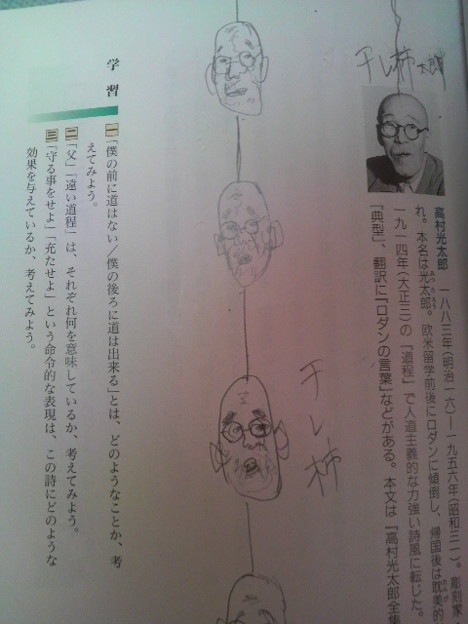 干し柿太郎
高村光太郎 一八八三年(明治一六)―一九五六年(昭和三一)。彫刻家・
れ。本名は光太郎。欧米留学前後にロダンに傾倒し、帰国後は耽美的
一九一四年(大正三)の『道程』で人道主義的な力強い詩風に転じた。
『典型』、翻訳に『ロダンの言葉』などがある。本文は『高村光太郎全集
干し柿
学習
一 「僕の前に道はない/僕の後ろに道は出来る」とは、どのようなことか、考
えてみよう。
二 「父」「遠い道程」は、それぞれ何を意味しているか、考えてみよう。
三 「守る事をせよ」「充たせよ」という命令的な表現は、この詩にどのような
効果を与えているか、考えてみよう。